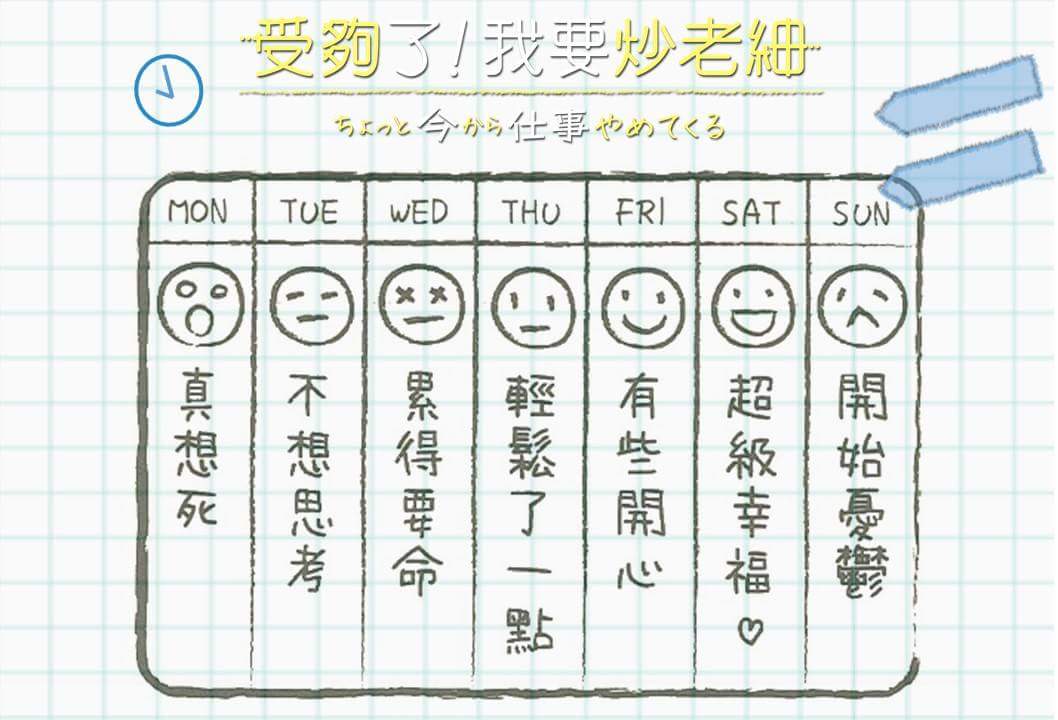 受夠了!我要炒老細
ちょっと今から仕事やめてくる
MON TUE WED THU FRI SAT SUN
真想死
不想思考
累得要命
輕鬆了一點
有些開心
超級幸福♡
開始憂鬱